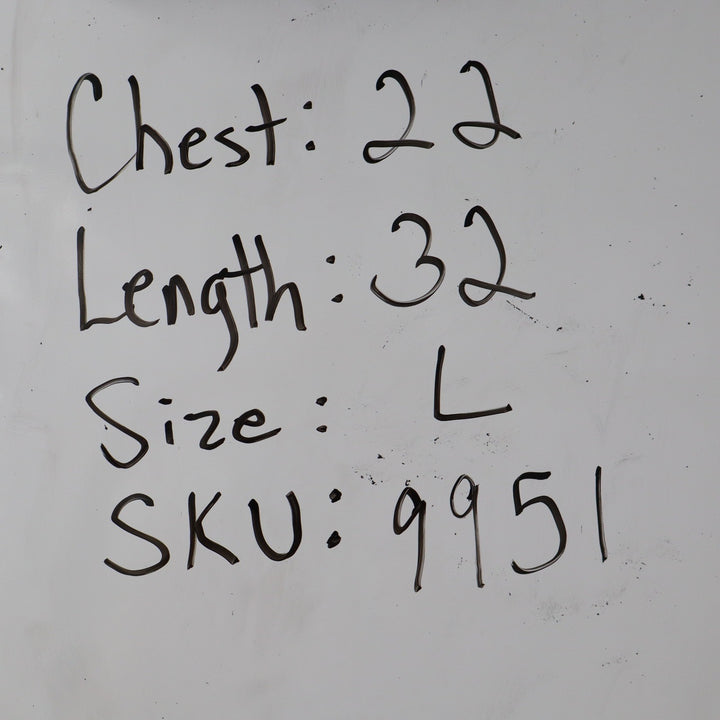 Chest: 22
Length: 32
Size: L
SKU: 9951